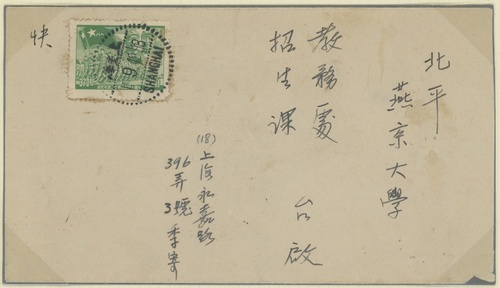 北平
燕京大學
教務處
招生课 台啟
(18)上海永嘉路
396弄3號季寄
快
SHANGHAI